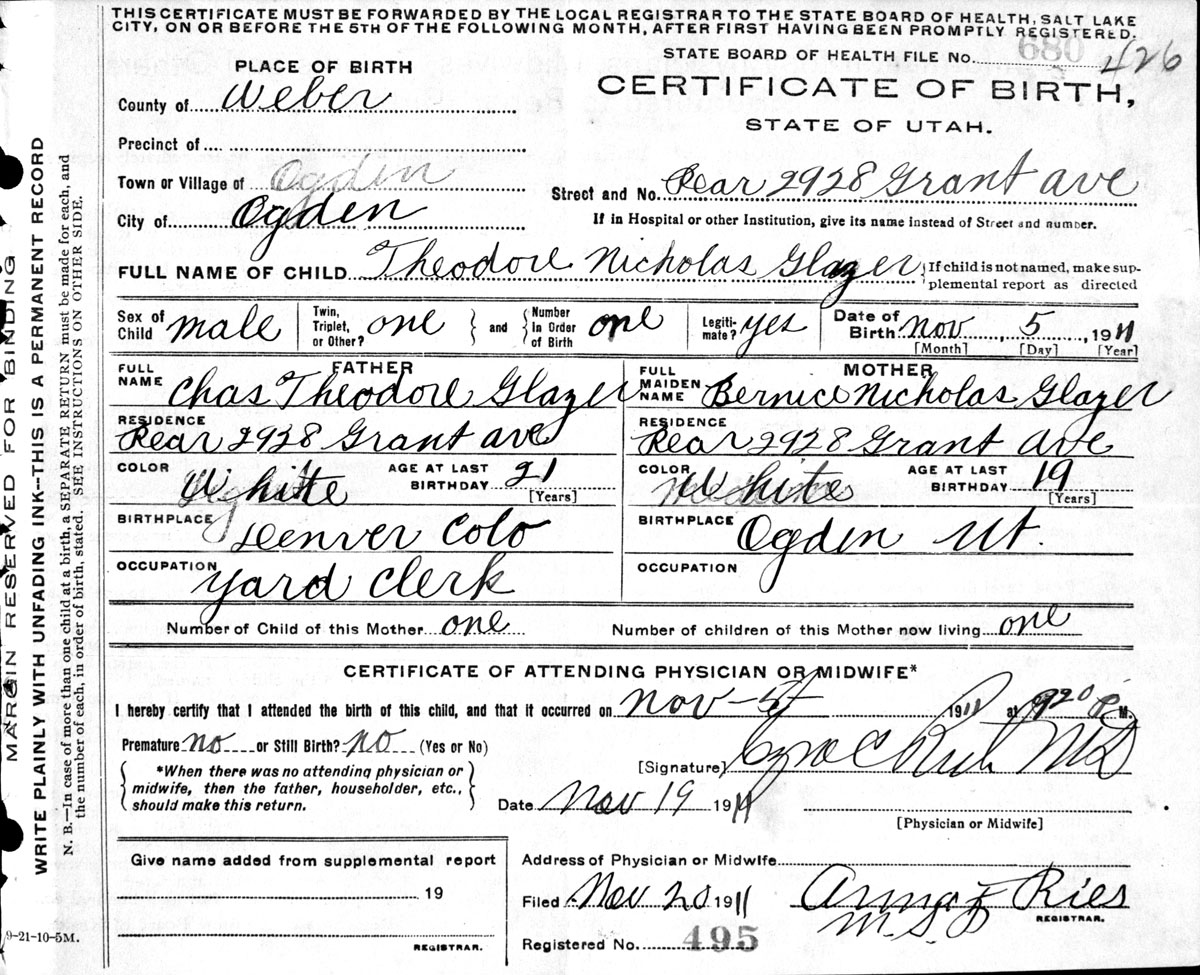 THIS CERTIFICATE MUST BE FORWARDED BY THE LOCAL REGISTRAR TO THE STATE BOARD OF HEALTH, SALT LAKE
CITY, ON OR BEFORE THE 5TH OF THE FOLLOWING MONTH, AFTER FIRST HAVING BEEN PROMPTLY REGISTERED.
STATE BOARD OF HEALTH FILE No. 680 426
PLACE OF BIRTH
CERTIFICATE OF BIRTH,
STATE OF UTAH.
County of Weber
Precinct of
Town or Village of Ogden
City of Ogden
Street and No. Rear 2928 Grant ave
If in Hospital or other Institution, give its name instead of Street and number.
FULL NAME OF CHILD Theodore Nicholas Glazer {If child is not named, make sup-
plemental report as directed
Sex of Child male Twin, Triplet, or Other? one } and { Number in Order of Birth one Legiti-mate? yes Date of Birth nov 5, 1911
[Month] [Day] [Year]
FATHER
FULL NAME Chas Theodore Glazer
RESIDENCE Rear 2928 Grant ave
COLOR White AGE AT LAST BIRTHDAY 21 [Years]
BIRTHPLACE Denver Colo
OCCUPATION Yard Clerk
MOTHER
FULL MAIDEN NAME Bernice Nicholas Glazer
RESIDENCE Rear 2928 Grant ave
COLOR White AGE AT LAST BIRTHDAY 19 [Years]
BIRTHPLACE Ogden Ut.
OCCUPATION
Number of Child of this Mother one Number of children of this Mother now living one
CERTIFICATE OF ATTENDING PHYSICIAN OR MIDWIFE*
I hereby certify that I attended the birth of this child, and that it occurred on Nov - 5 1911 at 9:20 P. M.
Premature no or Still Birth? no (Yes or No)
*When there was no attending physician or
midwife, then the father, householder, etc.,
should make this return.
[Signature] Rich MD
Date Nov 19 1911
[Physician or Midwife]
Give name added from supplemental report
19
REGISTRAR.
Address of Physician or Midwife
Filed Nov 20 1911 Ries
REGISTRAR.
Registered No. 495
9-21-10-5M.
MARGIN RESERVED FOR BINDING
WRITE PLAINLY WITH UNFADING INK--THIS IS A PERMANENT RECORD
N. B.—In case of more than one child at a birth, a SEPARATE RETURN must be made for each, and
the number of each, in order of birth, stated. SEE INSTRUCTIONS ON OTHER SIDE.